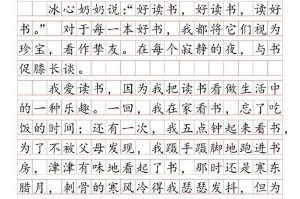 冰心奶奶说:“好读书，好读书，读好
书。”对于每一本好书，我都将它们视为
珍宝，看作挚友。在每个寂静的夜，与书
促膝长谈。
我爱读书，因为我把读书看做生活中
的一种乐趣。一回，我在家看书，忘了吃
饭的时间；还有一次，我五点钟起来看书，
为了不被父母发现，我蹑手蹑脚地跑进书
房，津津有味地看起了书，那时还是寒东
腊月，刺骨的寒风冷得我瑟瑟发抖，但为